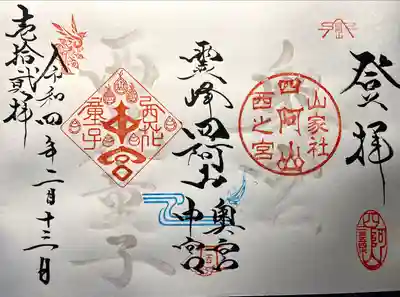 登拝
山家社
四阿山
西之宮
霊峰四阿山
奥宮
中宮
西花
本宮
童子
令和四年二月十三日
壱拾弐拝